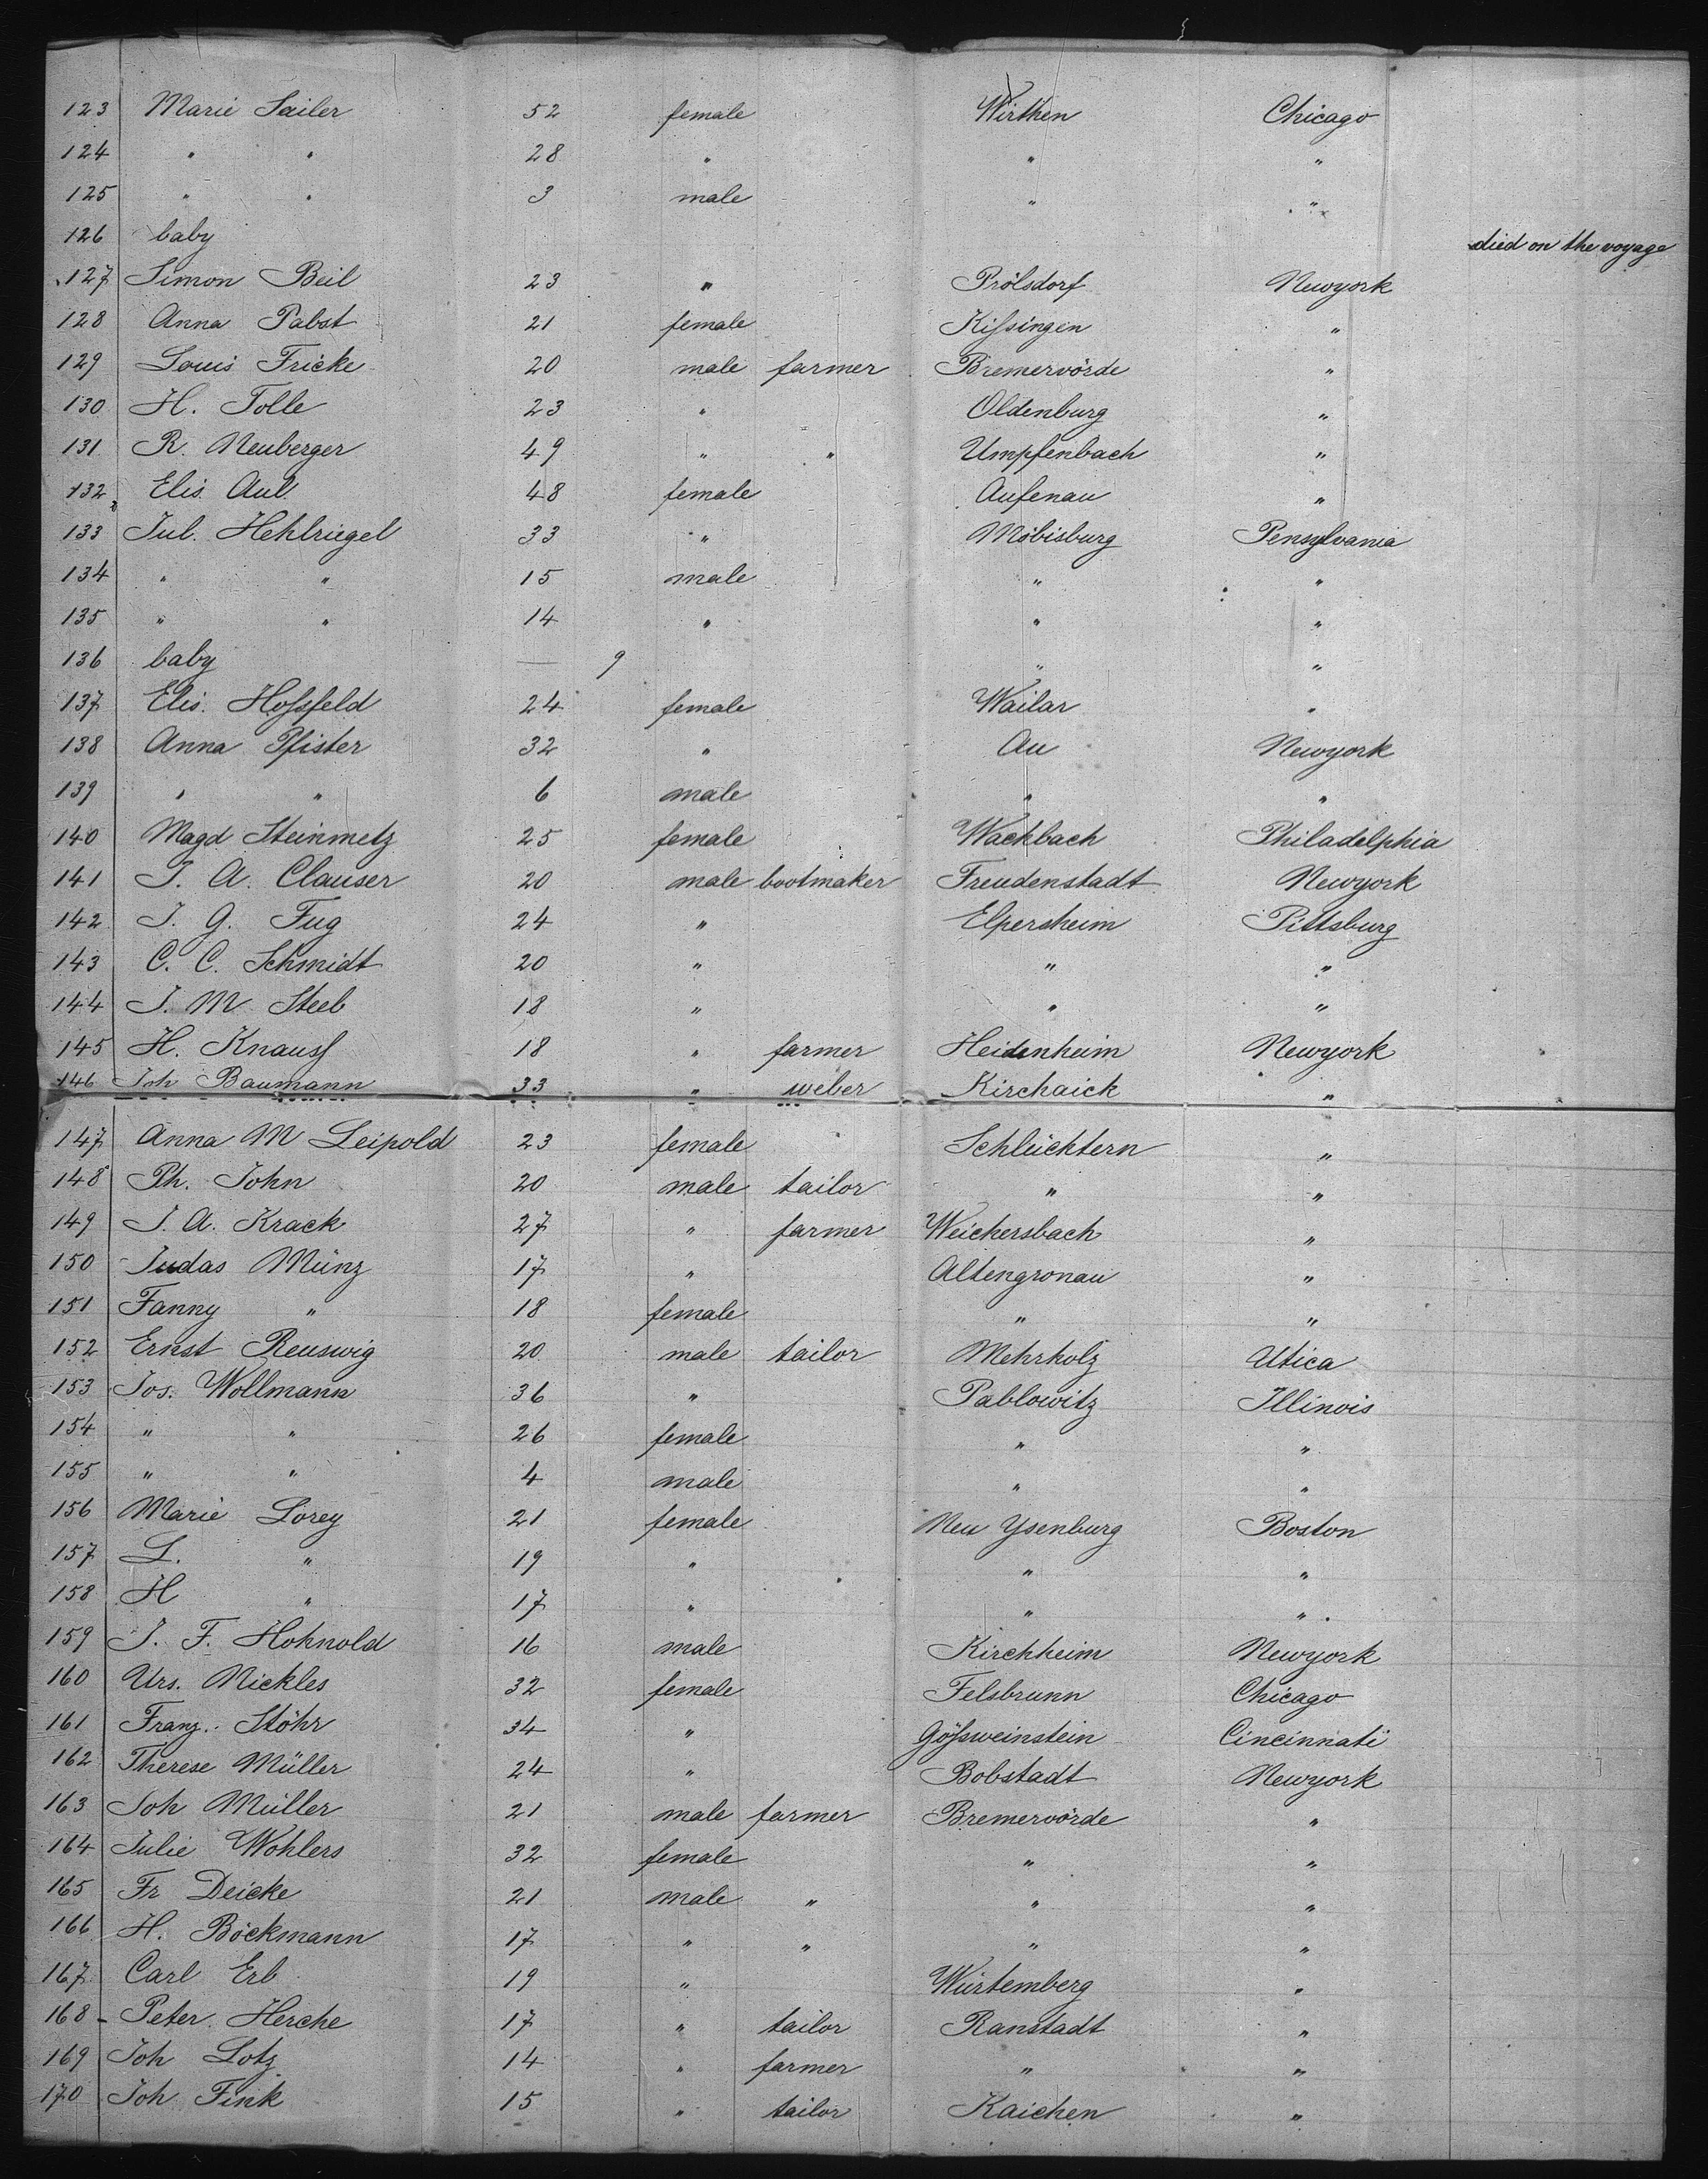 123 Marie Sailer 52 female Wirthen Chicago
124 " " 28 " " "
125 " " 3 male " "
126 baby died on the voyage
127 Simon Beil 23 " Prölsdorf Newyork
128 Anna Pabst 21 female Kissingen "
129 Louis Fricke 20 male farmer Bremervörde "
130 H. Tolle 23 " Oldenburg "
131 R. Neuberger 49 " " Umpfenbach "
132 Elis. Aul 48 female Aufenau "
133 Jul. Hehlriegel 33 " Möbisburg Pensylvania
134 " " 15 male " "
135 " " 14 " " "
136 baby — 9 " "
137 Elis. Hossfeld 24 female Wailar "
138 Anna Pfister 32 " Au Newyork
139 " " 6 male " "
140 Magd Steinmetz 25 female Wachbach Philadelphia
141 J. A. Clauser 20 male bootmaker Freudenstadt Newyork
142 J. G. Fug 24 " Elpersheim Pittsburg
143 C. C. Schmidt 20 " " "
144 J. M. Steeb 18 " " "
145 H. Knauss 18 " farmer Heidenheim Newyork
146 Joh Baumann 33 " weber Kirchaick "
147 Anna M Leipold 23 female Schlüchtern "
148 Ph. John 20 male tailor " "
149 J. A. Krack 27 " farmer Weichersbach "
150 Judas Münz 17 " Altengronau "
151 Fanny " 18 female " "
152 Ernst Reuswig 20 male tailor Mehrholz Utica
153 Jos. Wollmann 36 " Pablowitz Illinois
154 " " 26 female " "
155 " " 4 male " "
156 Marie Lorey 21 female Neu Ysenburg Boston
157 L. " 19 " " "
158 H " 17 " " "
159 J. F. Hohnold 16 male Kirchheim Newyork
160 Urs. Nickles 32 female Felsbrunn Chicago
161 Franz. Stöhr 34 " Gössweinstein Cincinnati
162 Therese Müller 24 " Bobstadt Newyork
163 Joh Müller 21 male farmer Bremervörde "
164 Julie Wohlers 32 female " "
165 Fr Deicke 21 male " " "
166 H. Böckmann 17 " " " "
167 Carl Erb 19 " Würtemberg "
168 Peter Herche 17 " tailor Ranstadt "
169 Joh Lotz 14 " farmer " "
170 Joh Fink 15 " tailor Kaichen "